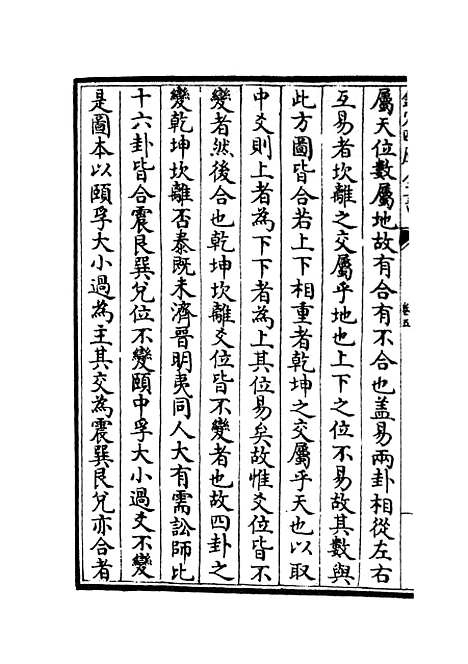 屬天位數屬地故有合有不合也盖易兩卦相從左右
互易者坎離之交屬乎地也上下之位不易故其數與
此方圖皆合若上下相重者乾坤之交屬乎天也以取
中爻則上者為下下者為上其位易矣故惟爻位皆不
變者然後合也乾坤坎離爻位皆不變者也故四卦之
變乾坤坎離否泰既未濟晉明夷同人大有需訟師比
十六卦皆合震艮巽兌位不變頤中孚大小過爻不變
是圖本以頤孚大小過為主其交為震巽艮兌亦合者
卷五